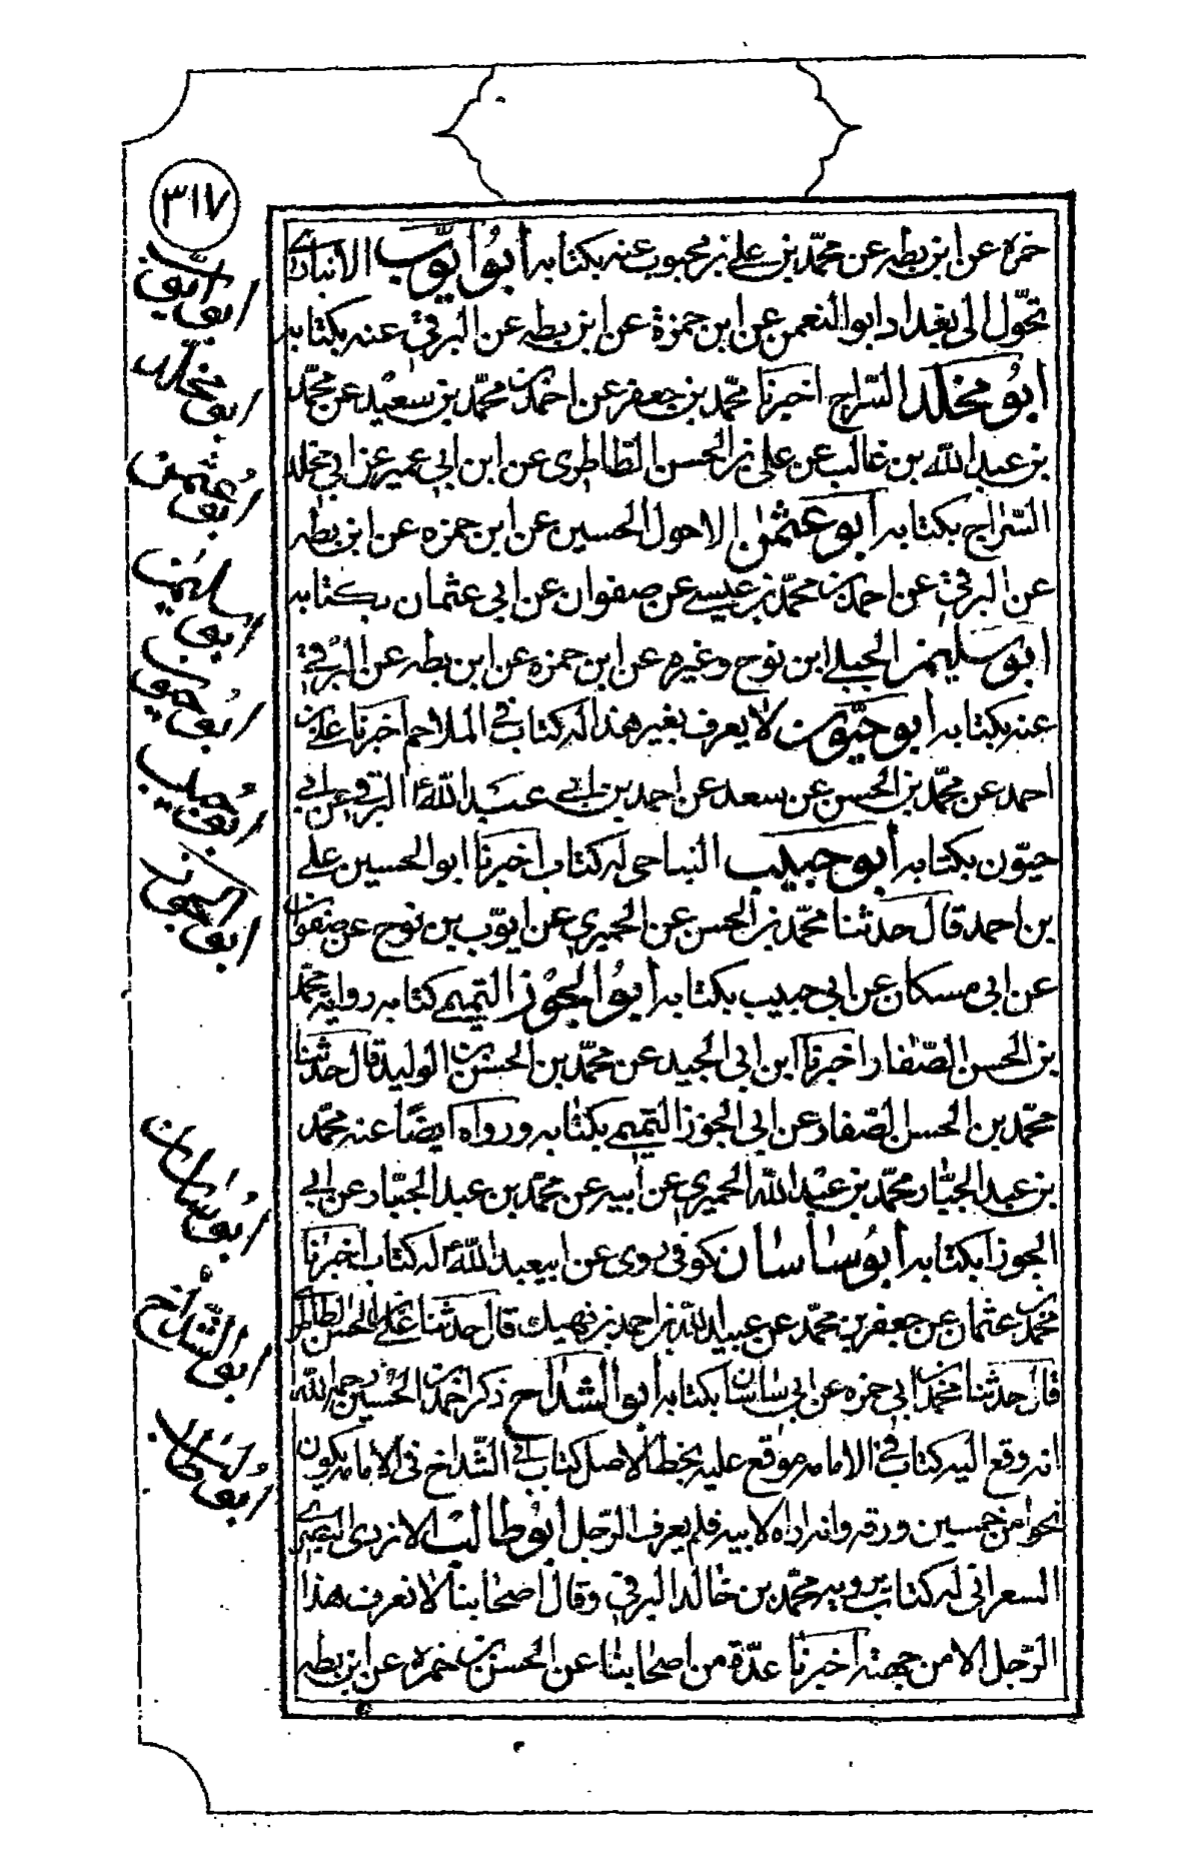 ٣١٧
حمزه عن ابن بطه عن محمّد بن علي بن محبوب عنه بكتابه أبو أيّوب الانباري
تحّول الى بغداد ابو النعمن عن ابن حمزة عن ابن بطه عن البرقي عنه بكتابه
ابُو مخلد السّراج اخبرنا محمّد بن جعفر عن احمد بن محمّد بن سعيد عن محمّد
بن عبد الله بن غالب عن علي بن الحسن الطّاطري عن ابن ابي عمير عن ابي مخلد
السّراج بكتابه أبو عثمٰن الاحول الحسين عن ابن حمزه عن ابن بطه
عن البرقي عن احمد بن محمّد بن عيسى عن صفوان عن ابي عثمان بكتابه
ابو سليمٰن الجبلي ابن نوح وغيره عن ابن حمزه عن ابن بطه عن البرقي
عنه بكتابه أبو حيّون لا يعرف بغير هذا له كتاب في الملاحم اخبرنا علي بن
احمد عن محمّد بن الحسن عن سعد عن احمد بن ابي عبد الله البرقي عن ابي
حيّون بكتابه أبو حبيب النباحى له كتاب اخبرنا ابو الحسين علي
بن احمد قال حدثنا محمّد بن الحسن عن الحميري عن ايوّب بن نوح عن صفوان
عن ابى مسكان عن ابي حبيب بكتابه أبوُ الجوْزا التميمي كتابه رواية محمّد
بن الحسن الصّفار اخبرنا ابن ابي الجيد عن محمّد بن الحسن بن الوليد قال حدثنا
محمّد بن الحسن الصّفار عن ابي الجوزا التميمي بكتابه ورواه ايضًا عنه محمّد
بن عبد الجبّار محمّد بن عبْد الله الحميري عن أبيه عن محمّد بن عبد الجبّار عن ابي
الجوزا بكتابه أبوُ ساسان كوفى روى عن ابيعبد الله ع له كتاب اخبرنا
محمّد بن عثمان عن جعفر بن محمّد عن عبيد الله بن احمد بن نهيك قال حدثنا علي بن الحسن الطاطري
قال حدثنا محمّد بن ابي حمزه عن ابي ساسان بكتابه أبو الشداح ذكر احمد بن الحسين رحمه الله
انه وقع اليه كتاب في الامامه موقع عليه بخط الاصل كتاب ابي الشّداخ فى الامامه يكون
نحوا من خمسين ورقه وانه اراه لابيه فلم يعرف الرّجل أبوُ طالب الازدى البصري
السعرانى له كتاب يرويه محمّد بن خالد البرقي وقال اصحابنا لا نعرف هذا
الرّجل الا من جهته اخبرنا عدّة من اصحابنا عن الحسن بن حمزه عن ابن بطه
ابو ايوب
ابو مخلد
ابو عثمن
ابو سليمن
ابو حيون
ابو حبيب
ابو الجوزا
ابو ساسان
ابو الشّداخ
ابو طالب